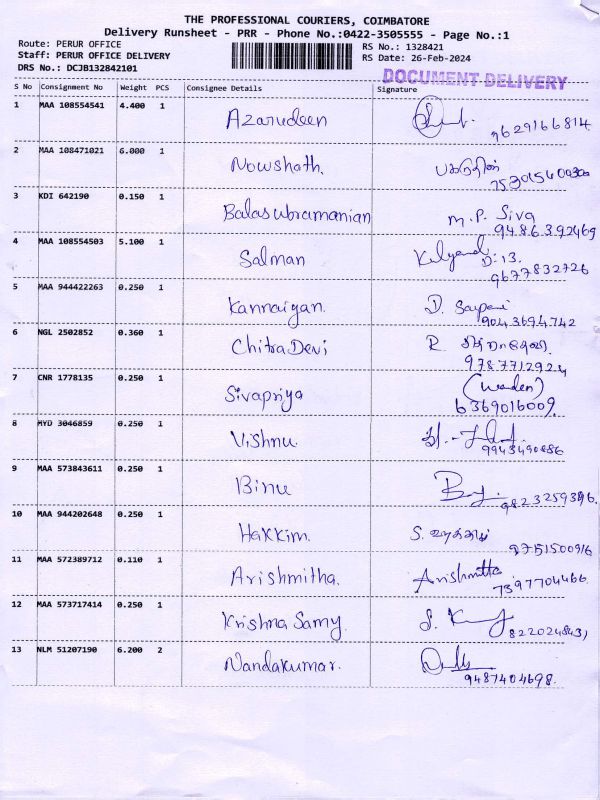 THE PROFESSIONAL COURIERS, COIMBATORE
Delivery Runsheet - PRR - Phone No.:0422-3505555 - Page No.:1
Route: PERUR OFFICE RS No.: 1328421
Staff: PERUR OFFICE DELIVERY RS Date: 26-Feb-2024
DRS No.: DCJB132842101 DOCUMENT DELIVERY
S No Consignment No Weight PCS Consignee Details Signature
1 MAA 108554541 4.400 1 Azarudeen
9629166814
2 MAA 108471021 6.000 1 Nowshath.
3 KDI 642190 0.150 1 Balasubramanian M.P. Siva
9486392469
4 MAA 108554503 5.100 1 Salman
D:13.
9677832726
5 MAA 944422263 0.250 1 Kannaigan. D.
9043694742
6 NGL 2502852 0.360 1 Chitra Devi R
9787712924
7 CNR 1778135 0.250 1 Sivapriya (Warden)
6369016009.
8 MYD 3046859 0.250 1 Vishnu.
9943490686
9 MAA 573843611 0.250 1 Binu
10 MAA 944202648 0.250 1 Hakkim. S.
9751500916
11 MAA 572389712 0.110 1 Arishmitha. Arishmitha
7397704466
12 MAA 573717414 0.250 1 Krishna Samy.
13 NLM 51207190 6.200 2 Nandakumar.
9487404698.